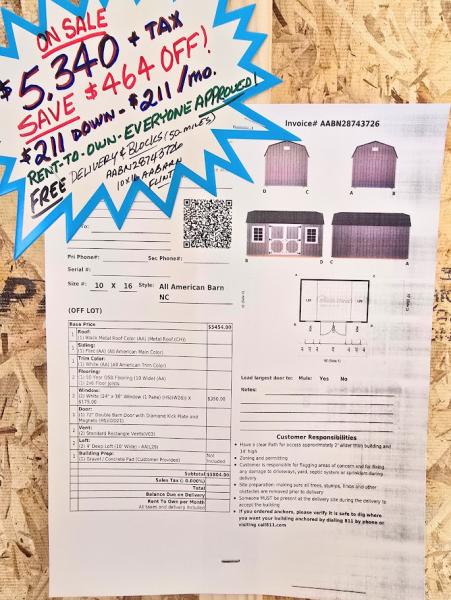 ON SALE
$5,340 + TAX
SAVE $464 OFF!
$211 DOWN - $211/mo.
RENT-TO-OWN-EVERYONE APPROVED!
FREE DELIVERY & BLOCKS (50-MILES)
AABN28743726
10x16 AABARN
FLINT
Invoice# AABN28743726
D C
A A B
B D C A
Pri Phone#: Sec Phone#:
Serial #:
Size #: 10 X 16 Style: All American Barn
NC
(OFF LOT)
Base Price $5454.00
1 Roof:
(1) Black Metal Roof Color (AA) (Metal Roof (CH))
1 Siding:
(1) Flint (AA) (All American Main Color)
1 Trim Color:
(1) White (AA) (All American Trim Color)
Flooring:
(1) 50 Year OSB Flooring (10 Wide) (AA)
(1) 2x6 Floor Joists
2 Window:
(2) White (24" x 36" Window (1 Pane) X $350.00
$175.00
Door:
(1) 72" Double Barn Door with Diamond Kick Plate and
Magnets
2 Vent:
(2) Standard Rectangle Vents
2 Loft:
(2) 4' Deep Loft (10' Wide) - AA
1 Building Prep: Not
(1) Gravel / Concrete Pad (Customer Provided) Included
Subtotal $5804.00
Sales Tax ( 0.000%)
Total
Balance Due on Delivery
Rent To Own per Month
All taxes and delivery included
Load largest door to: Mule: Yes No
Notes:
Customer Responsibilities
• Have a clear Path for access approximately 2' wider than building and
14' high
• Zoning and permitting
• Customer is responsible for flagging areas of concern and for fixing
any damage to driveways, yard, septic system or sprinklers during
delivery
• Site preparation: making sure all trees, stumps, limbs and other
obstacles are removed prior to delivery
• Someone MUST be present at the delivery site during the delivery to
accept the building
• If you ordered anchors, please verify it is safe to dig where
you want your building anchored by dialing 811 by phone or
visiting call811.com